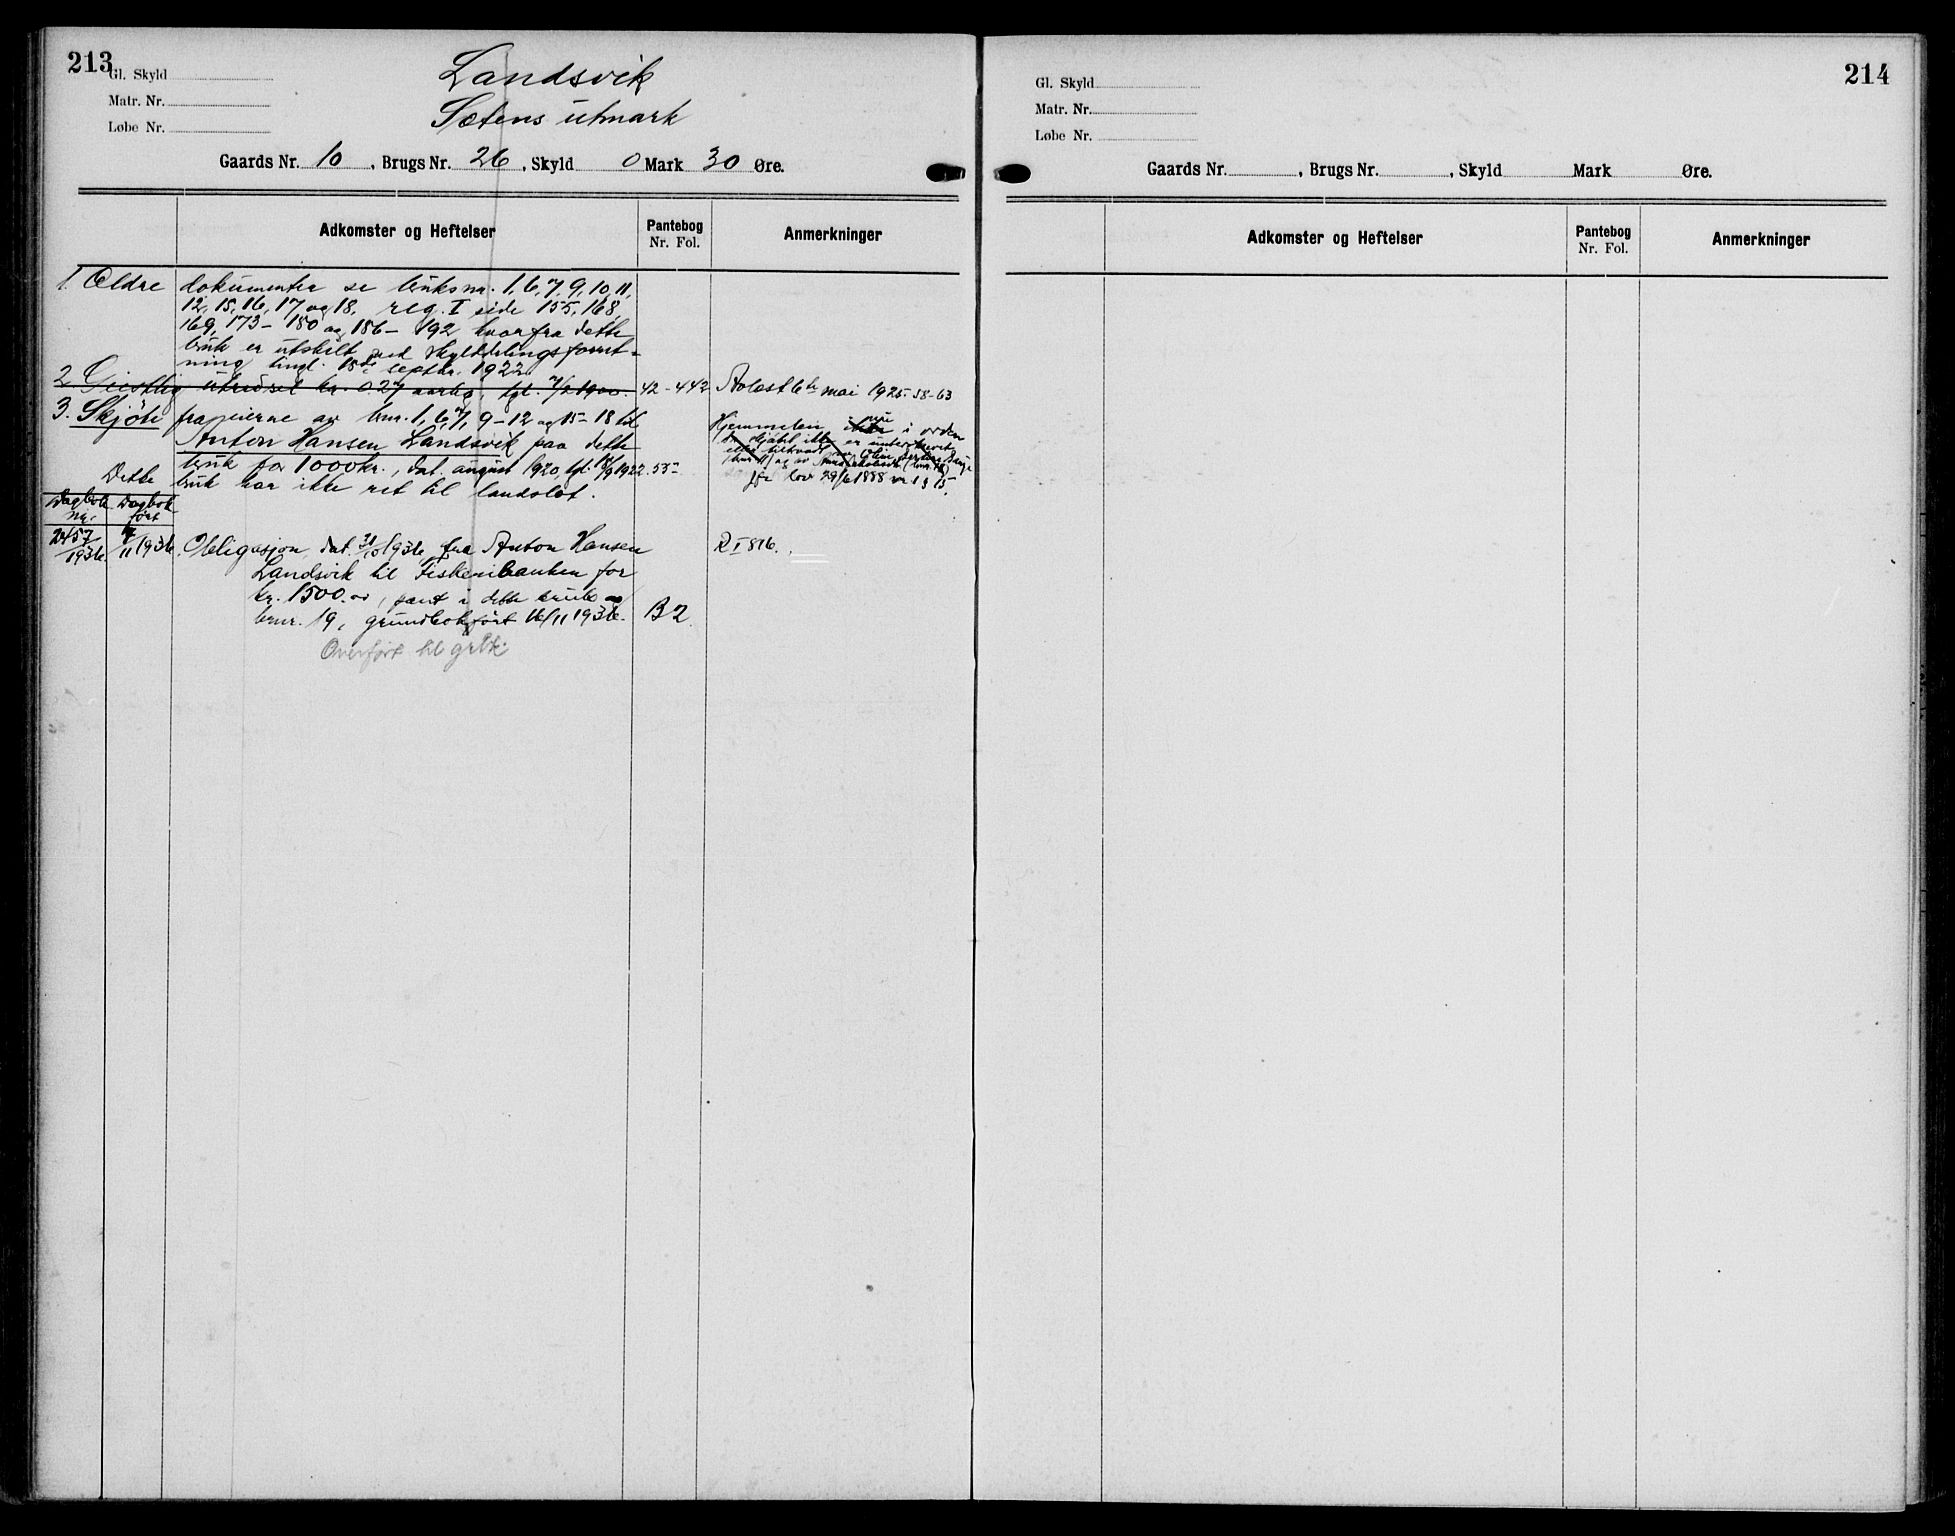 213
Gl. Skyld
Matr. Nr.
Løbe Nr.
Landsvik
Sætens utmark
Gaards Nr. 10, Brugs Nr. 26, Skyld 0 Mark 30 Øre.
Adkomster og Heftelser
Pantebog
Nr. Fol.
Anmerkninger
1. Ældre dokumenter se bruksnr. 1, 6, 7, 9, 10, 11,
12, 15, 16, 17 og 18, reg. I side 155, 168,
169, 173 - 180 og 186 - 192 hvorfra dette
bruk er utskilt ved skylddelingsforret-
ning tingl. 18de septbr. 1922.
2. Geistlig utredsel kr. 0.27 aarlig, tgl. 7/2 1900. 42 - 442 Avløst 6te mai 1925 - 58 - 63
3. Skjøte fra eierne av bnr. 1, 6, 7, 9 - 12 og 15 - 18 til
Anton Hansen Landsvik paa dette
bruk for 1000 kr., dat. august 1920, tgl. 18/9 1922. 55 -
Dette bruk har ikke ret til landslot.
Hjemmelen ikke nu i orden
da skjøtet ikke er underskrevet
(bnr. 11) og av (bnr. 18)
jfr lov 29/6 1888 nr 1 § 15.
Dagbok nr.
Dagbok ført
2457/1936. 7/11 1936. Obligasjon, dat. 31/10 1936, fra Anton Hansen R I 816.
Landsvik til Fiskeribanken for
kr. 1500.00, pant i dette bruk og
bnr. 19, grundbokført 16/11 1936. B 2.
Overført til grbk.
214
Gl. Skyld
Matr. Nr.
Løbe Nr.
Gaards Nr. , Brugs Nr. , Skyld Mark Øre.
Adkomster og Heftelser
Pantebog
Nr. Fol.
Anmerkninger